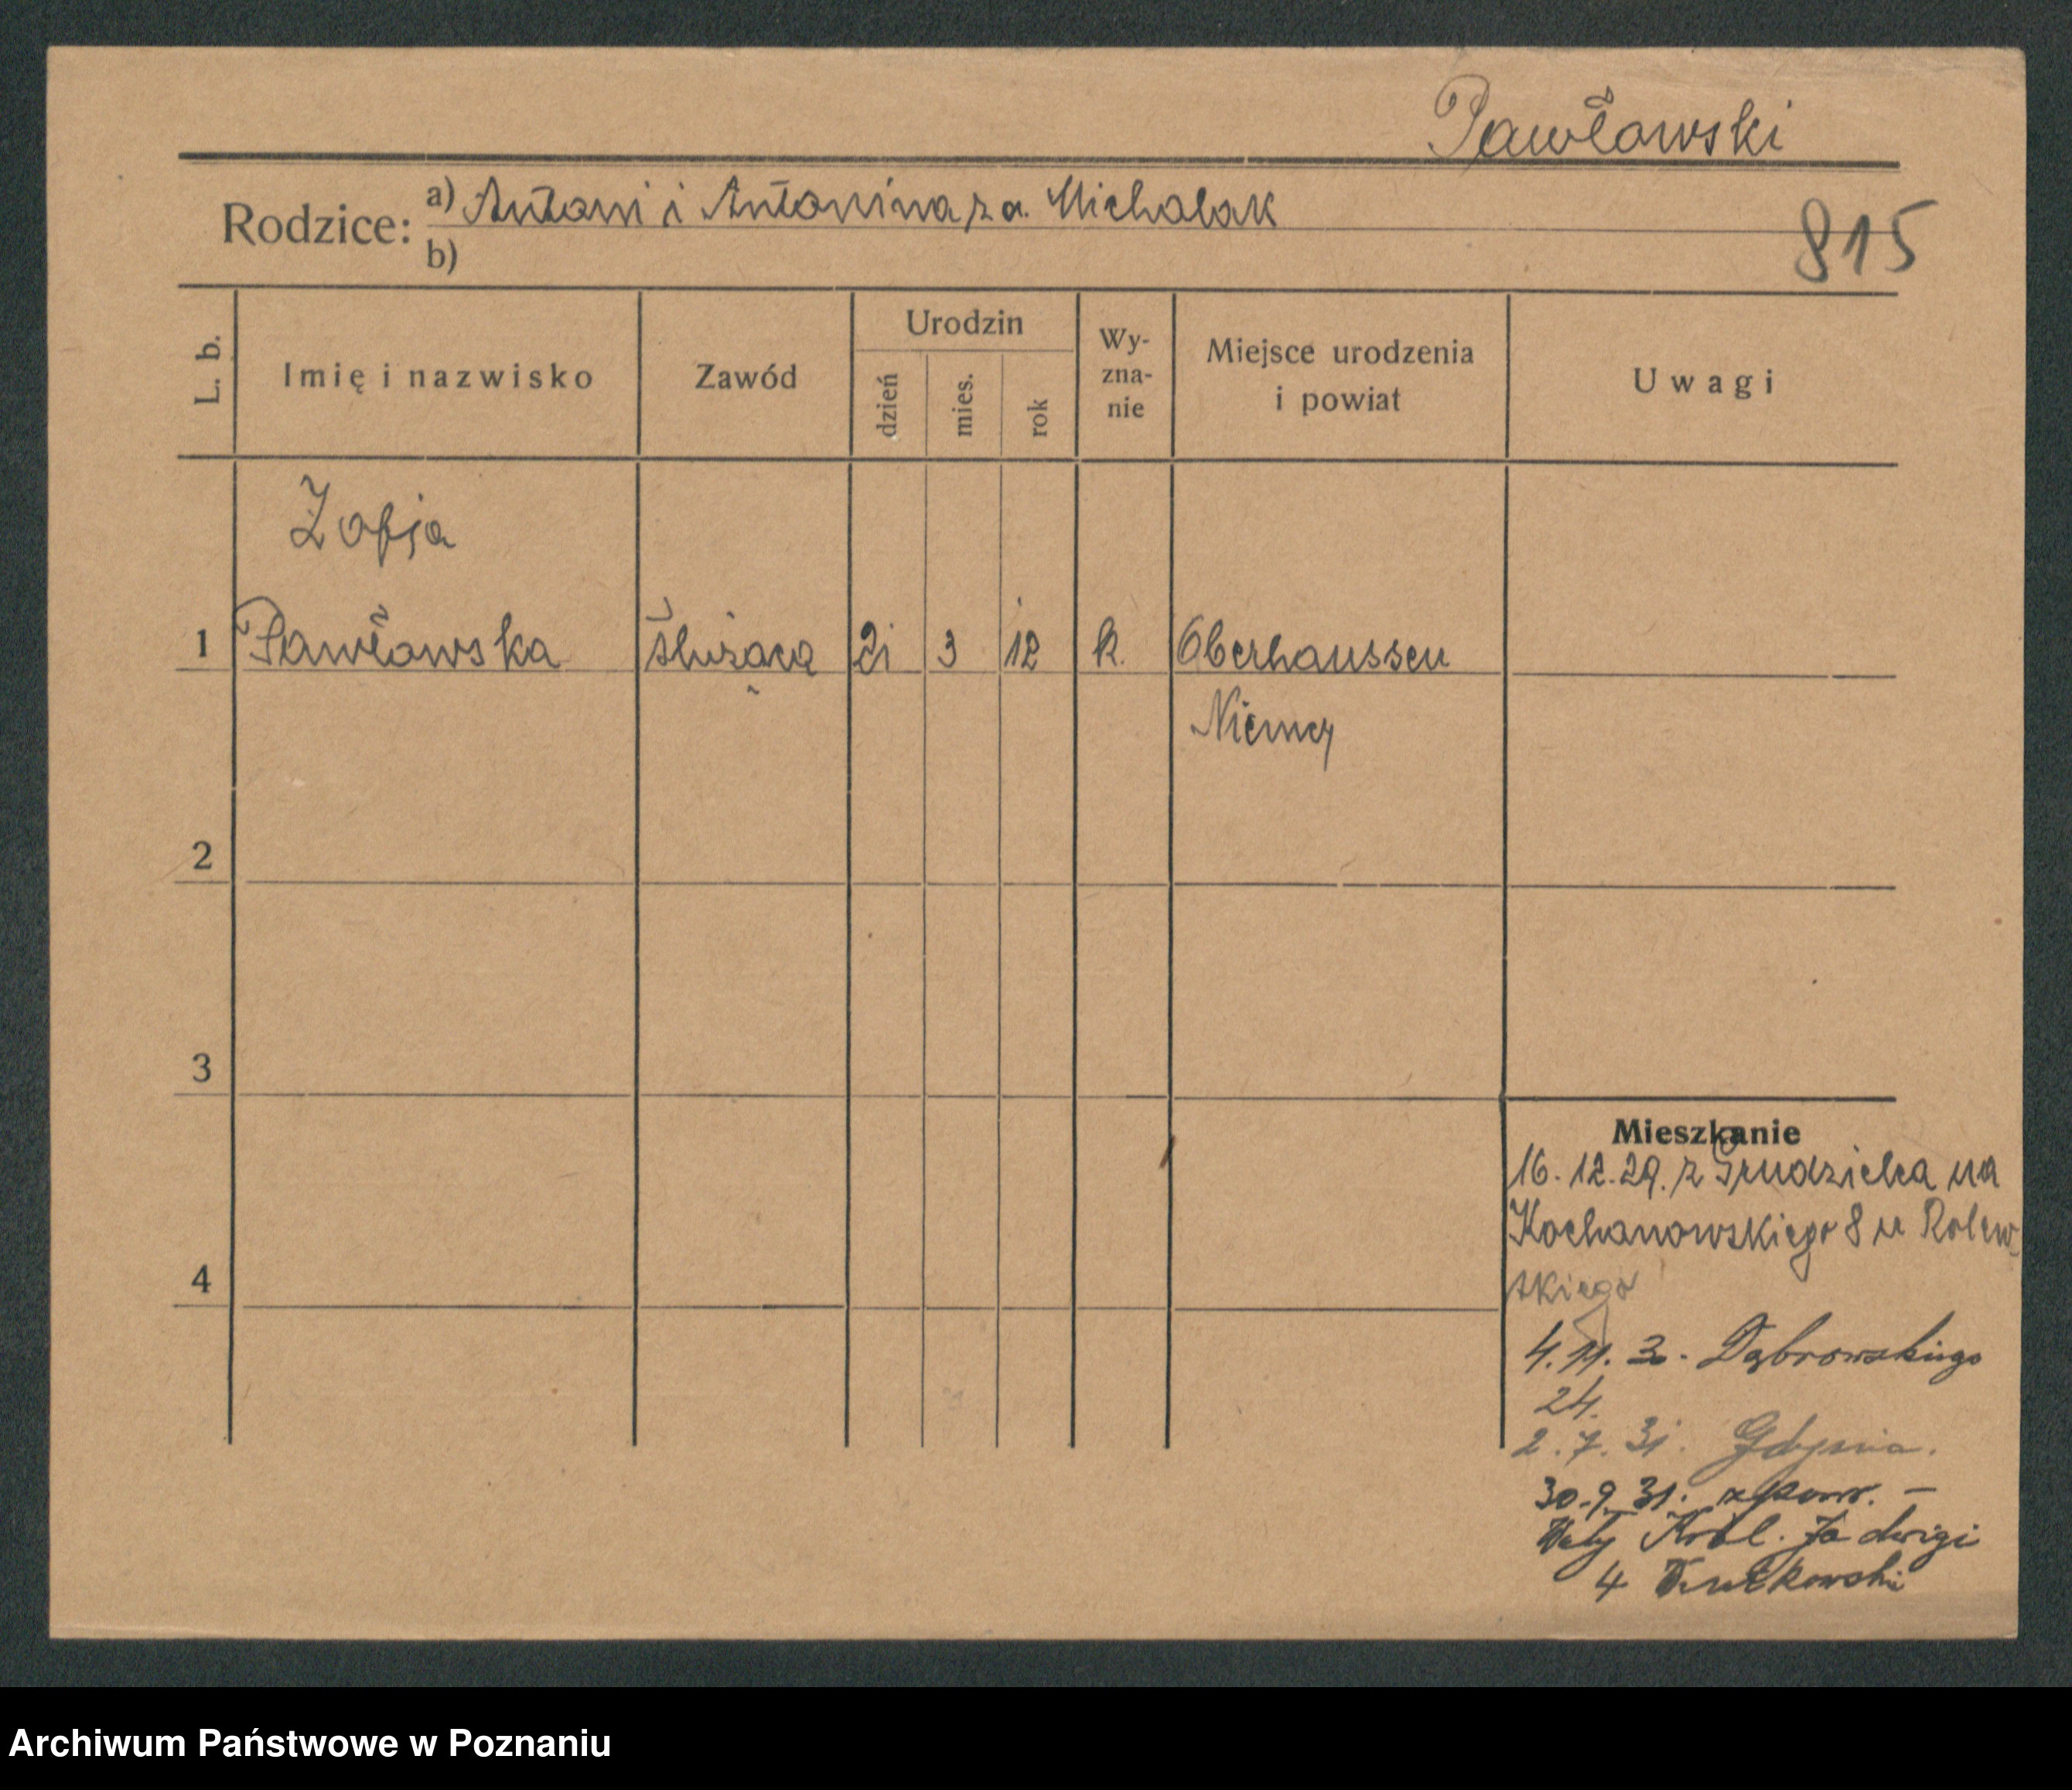 Pawłowski
Rodzice: a) Antoni i Antonina z d. Michalak
815
b)
L. b. Imię i nazwisko Zawód Urodzin dzień mies. rok Wy-zna-nie Miejsce urodzenia i powiat Uwagi
Zofja
1 Pawłowska służąca 21 3 12 k. Oberhaussen
Niemcy
2
3
Mieszkanie
16. 12. 29. z Grudzielca na
Kochanowskiego 8 u Rolew-
4
skiego
4. 11. 30. Dąbrowskiego
24.
2. 7. 31. Gdynia.
30. 9. 31. z pow. —
Wały Król. Jadwigi
4
Archiwum Państwowe w Poznaniu